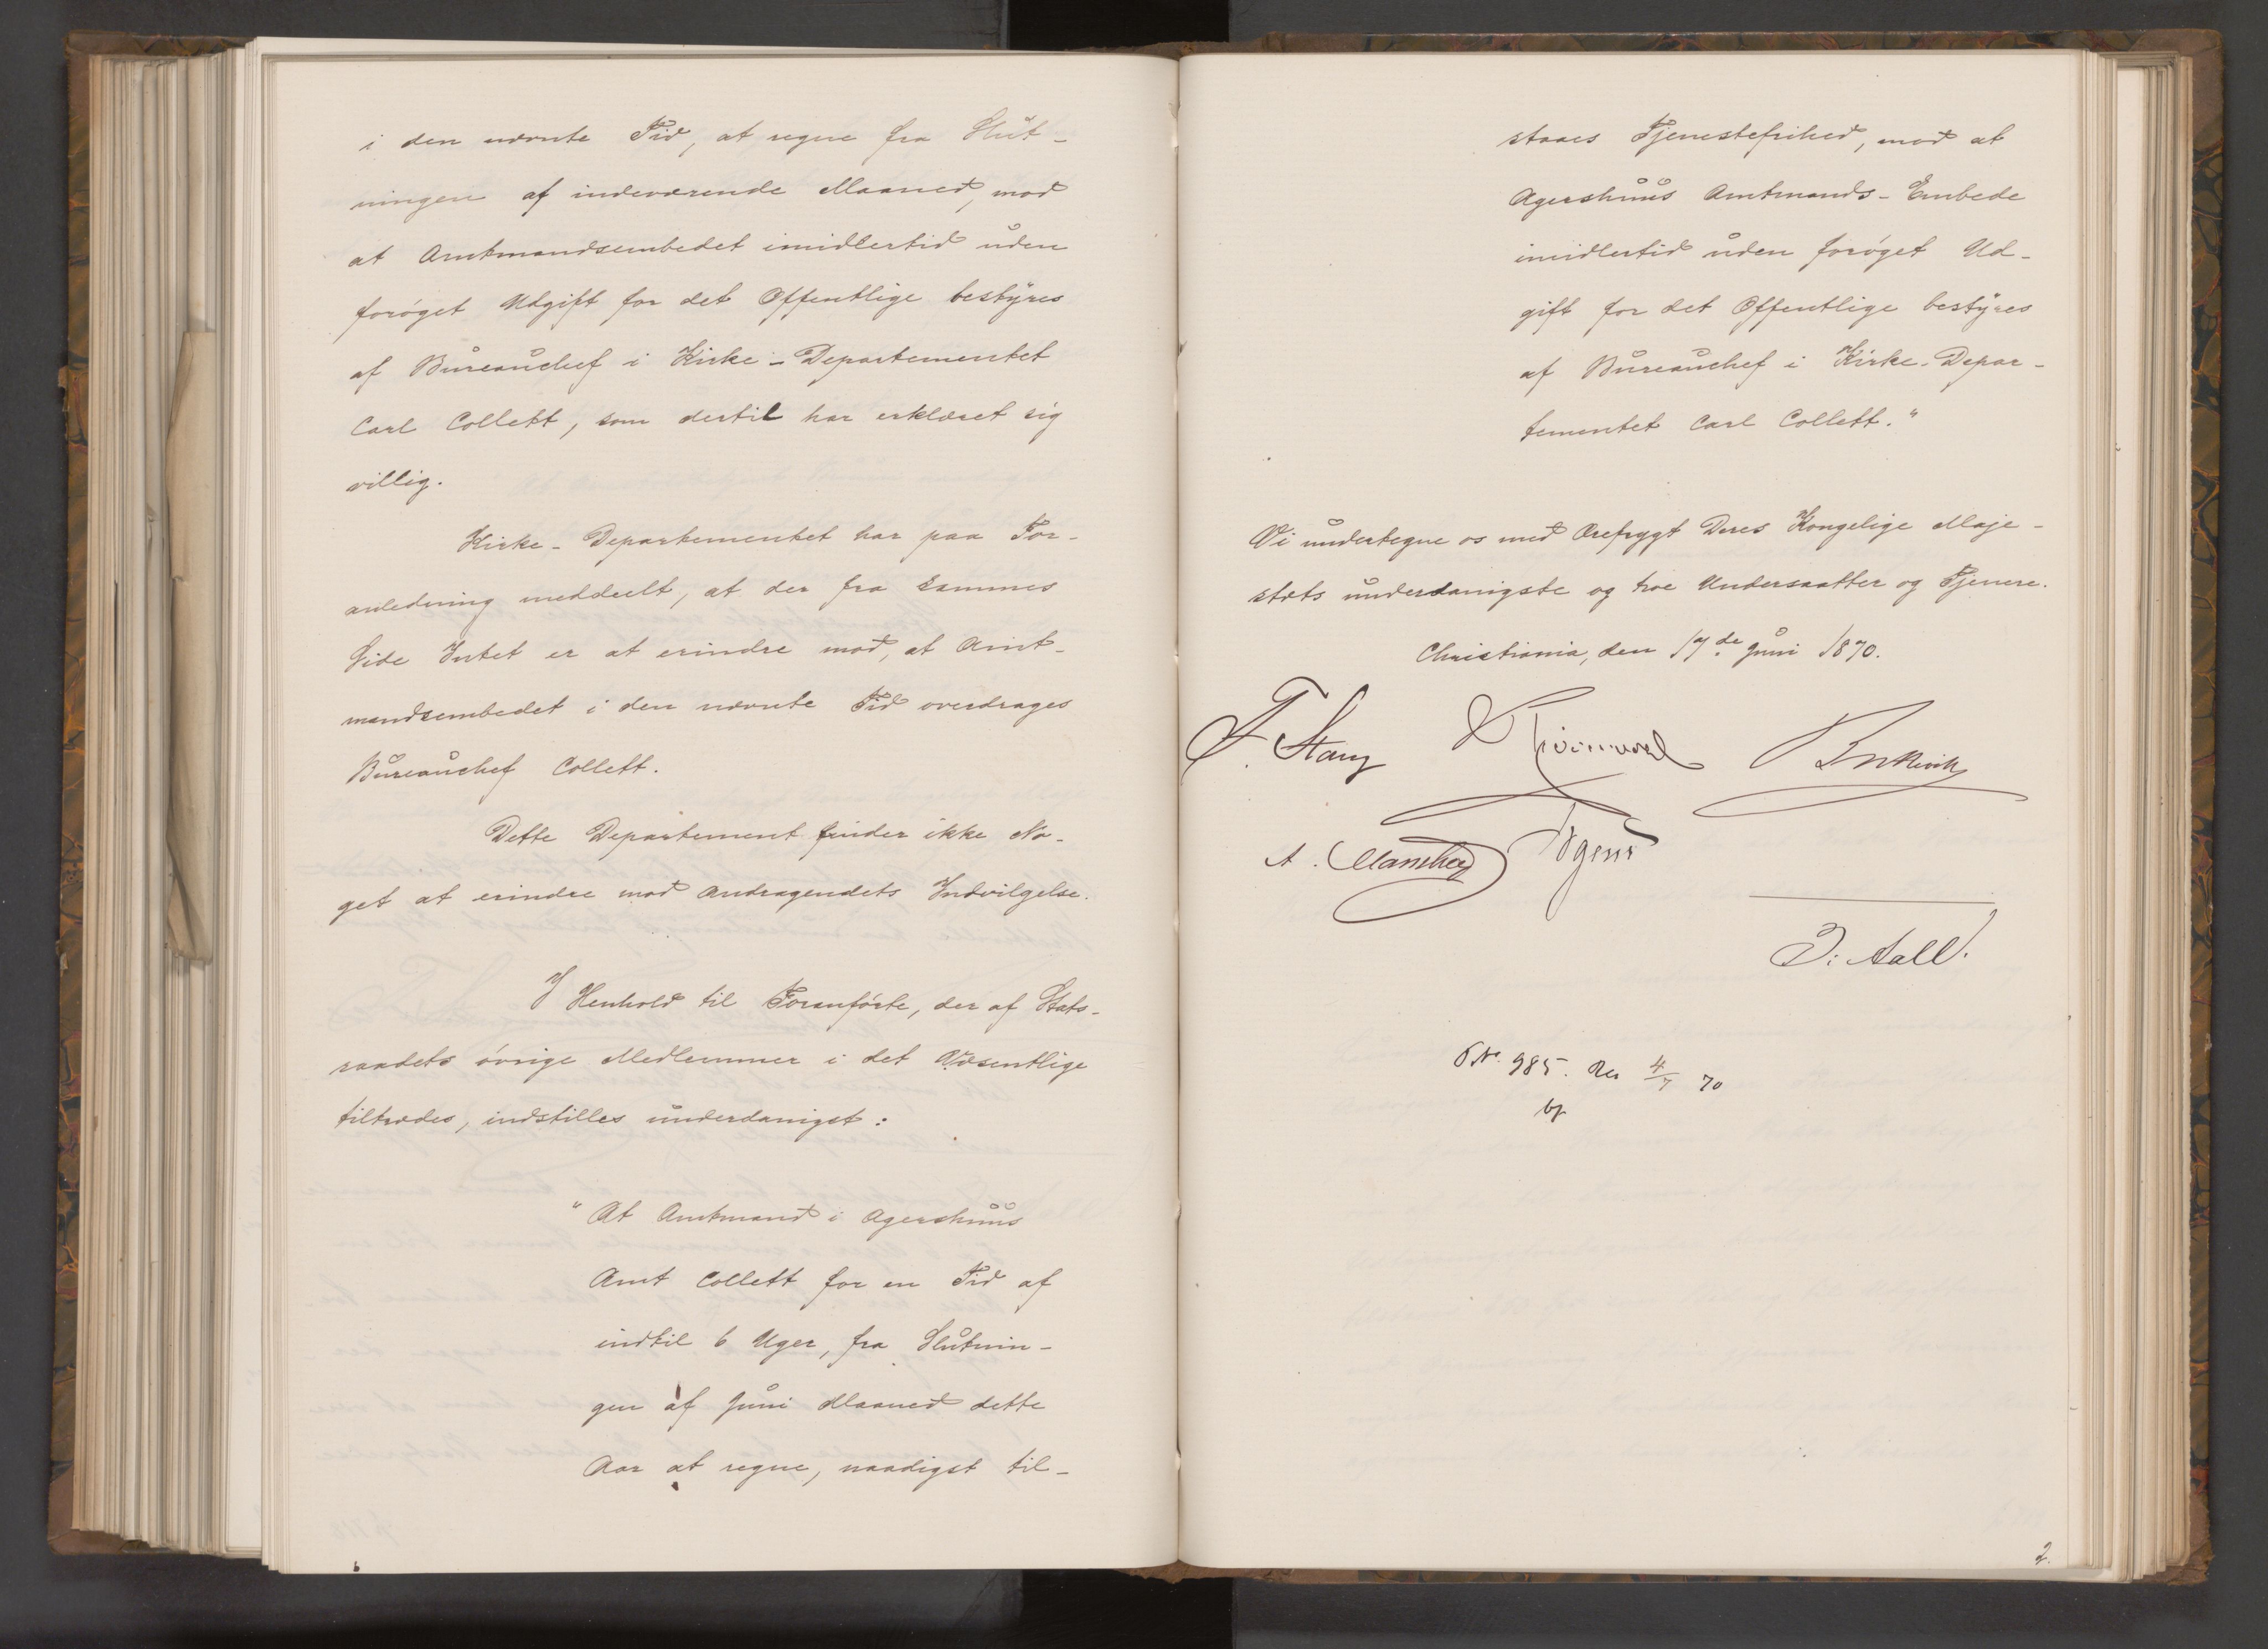 i den nævnte Tid, at regne fra Slut-
ningen af indeværende Maaned, mod
at Amtmandsembedet imidlertid uden
forøget Udgift for det Offentlige bestyres
af Bureauchef i Kirke-Departementet
Carl Collett, som dertil har erklæret sig
villig.
Kirke-Departementet har paa For-
anledning meddeelt, at der fra sammes
Side Intet er at erindre mod, at Amt-
mandsembedet i den nævnte Tid overdrages
Bureauchef Collett.
Dette Departement finder ikke No-
get at erindre mod Andragendets Indvilgelse.
I Henhold til Foranførte, der af Stats-
raadets øvrige Medlemmer i det Væsentlige
tiltrædes, indstilles underdanigst:
"At Amtmand i Agershuus
Amt Collett for en Tid af
indtil 6 Uger, fra Slutnin-
gen af Juni Maaned dette
Aar at regne, naadigst til-
staaes Tjenestefrihed, mod at
Agershuus Amtmands-Embede
imidlertid uden forøget Ud-
gift for det Offentlige bestyres
af Bureauchef i Kirke-Depar-
tementet Carl Collett."
Vi undertegne os med Ærefrygt Deres Kongelige Maje-
stæts underdanigste og troe Undersaatter og Tjenere.
Christiania, den 17de Juni 1870.
F. Stang
A. Manthey
J. Aall.
No. 985. Res 4/7 70
2.